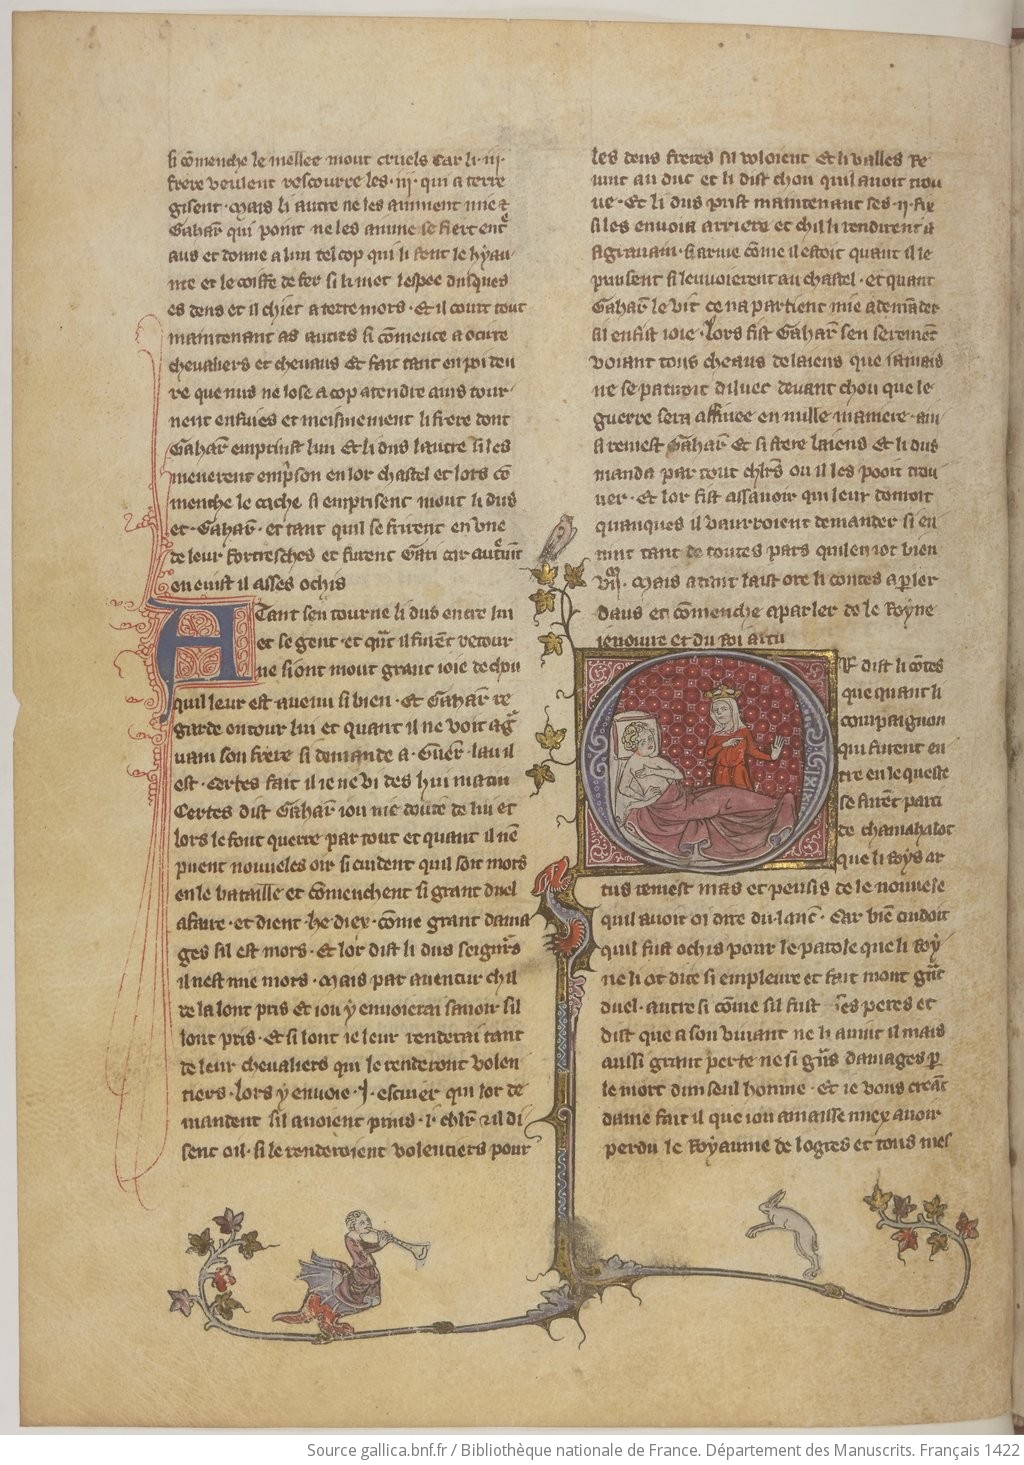 si cōmenche le mellee mout cruels Car li .iij.
frere veulent rescourre les .iij. qui a terre
gisent . Mais li autre ne les aimment mie ⁊
Gahar̄ qui point ne les aimme se fiert ent̄
aus et donne a lun tel cop qui li fent le hyau
me et le coiffe de fer si li met lespee dusques
es dens et il chiet a terre mors . Et il court tout
maintenant as autres si cōmence a ocirre
cheualiers et cheuaus Et fait tant en poi deu
re que nus ne lose a cop atendre ains tour
nent en fuies et meismement li frere dont
Gahar̄ emprinst lun Et li dus lautre si les
menerent emp̄son en lor chastel et lors cō
menche le cache si emprisent mout li dus
et . Gahar̄ . et tant quil se firirent en vne
de leur fortresches et furent
en euist il asses ochis
Atant sen tourne li dus entre lui
et se gent . et qūt il furēt retour
ne si ont mout grant ioie de chou
quil leur est auenu si bien . Et Gahar̄ re
garde entour lui et quant il ne voit aḡ
uain son frere si demande a . Guerr̄ . lau il
est . Certes fait il ie ne vi des hui matin
Certes dist Gahar̄ iou me doute de lui et
lors le font querre par tout et quant il nē
pueent nouueles oir si cuident quil soit mors
en le bataille et cōmenchent si grant duel
a faire . et dient . he diex . cōme grant dama
ges sil est mors . Et lor dist li dus seignrs
il nest mie mors . Mais par auentur chil
de la lont pris Et iou y enuoierai sauoir sil
lont pris . Et si lont ie leur renderai tant
de leur cheualiers qui le renderont volen
tiers . Lors y enuoie .I. escuier qui lor de
mandent sil auoient prins .i. chlr̄ ⁊ il di
sent oil . si le renderoient volentiers pour
les deus freres sil voloient Et li valles re
uint au duc et li dist chou quil auoit trou
ue . Et li dus prist maintenant ses .ij. fix
si les enuoia arriere et chil li rendirent a
agrauain . si arme cōme il estoit quant il le
prisent si lenuoierent au chastel . et quant
Gahar̄ le vit ce na partient mie a demāder
sil en fist ioie . Lors fist Gahar̄ sen seremēt
voiant tous cheaus de laiens que iamais
ne se patiroit diluec deuant chou que le
guerre sera affinee en nulle maniere . ain
si remest Gahar̄ Et si frere laiens Et li dus
manda par tout chlrs̄ ou il les pooit trou
uer . Et lor fist assauoir qui leur donroit
quanques il vaurroient demander si en
uint tant de toutes pars quil en iot bien
Mais atant laist ore li contes a p̄ler
daus et cōmenche a parler de le Royne
ienoiure et du Roi artu
Or dist li cōtes
que quant li
compaignon
qui furent en
tre en le queste
se furēt parti
de chamahalot
que li Roys ar
tus remest mas et pensis de le nouuele
quil auoit oi dire du lanc̄ . Car biē cuidoit
quil fust ochis pour le parole que li Roy
ne li ot dite si empleure et fait mout gr̄t
duel . autre si cōme sil fust ses peres et
dist que a son viuant ne li auint il mais
aussi grant perte ne si gns̄ damages p̄
le mort dun seul homme . Et ie vous creāt
dame fait il que iou amaisse miex auoir
perdu le Royaume de logres et tous mes
Source gallica.bnf.fr / Bibliothèque nationale de France. Département des Manuscrits. Français 1422